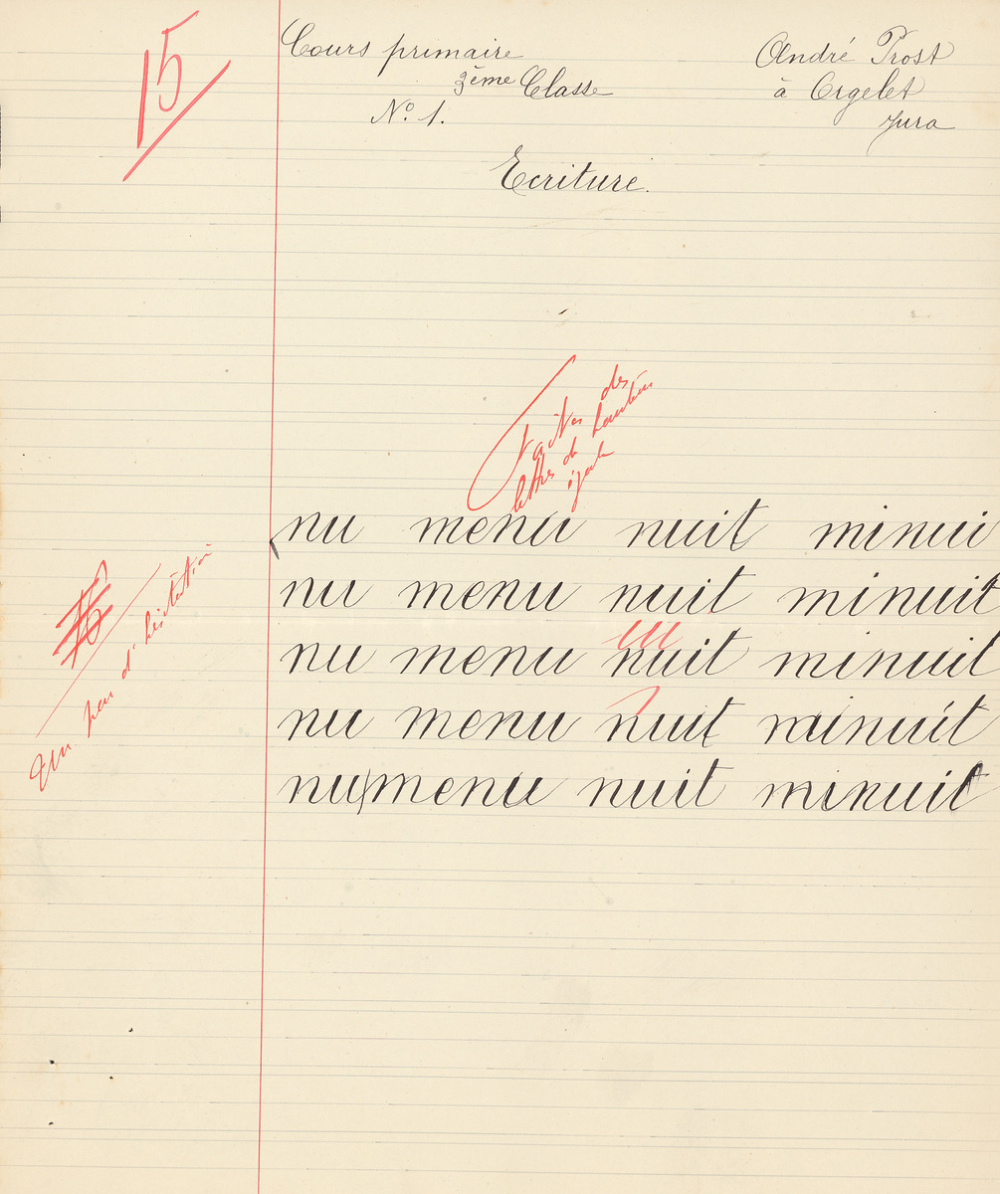 15
Cours primaire
3ème Classe
N° 1.
André Prost
à Orgelet
Jura
Ecriture.
Faites des
lettres de hauteur
égale
nu menu nuit minui
nu menu nuit minuit
nu menu nuit minuit
nu menu nuit minuit
nu menu nuit minuit
Un peu d'hésitation